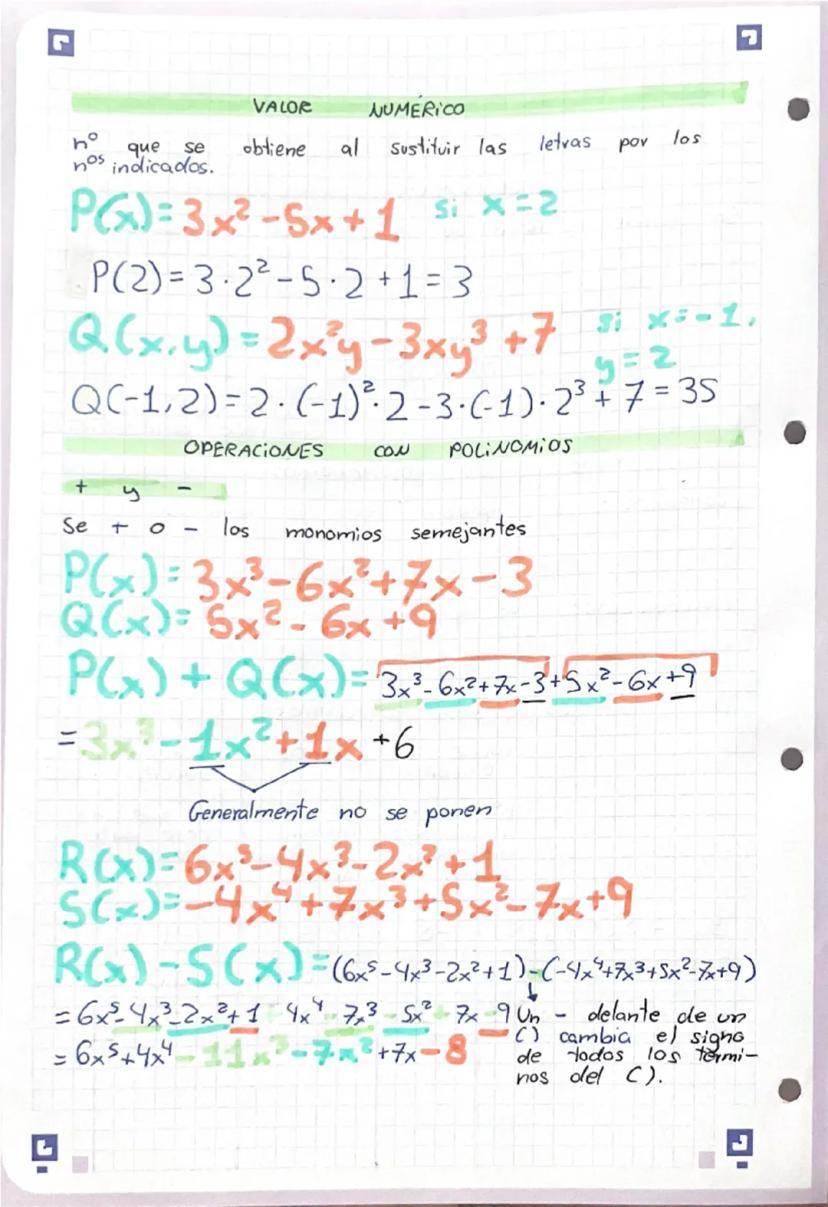 VALOR NUMÉRICO
nº que se obtiene al sustituir las letras por los
nos indicados.
P(x)=3x²-5x+1 si x=2
P(2)=3·2²-5·2+1=3
Q(x,y)=2x²y-3xy³+7 si x=-1,
y=2
Q(-1,2)=2·(-1)²·2-3·(-1)·2³+7=35
OPERACIONES CON POLINOMIOS
+ y -
Se + o - los monomios semejantes
P(x)=3x³-6x²+7x-3
Q(x)=5x²-6x+9
P(x)+Q(x)=3x³-6x²+7x-3+5x²-6x+9
=3x³-1x²+1x+6
Generalmente no se ponen
R(x)=6x⁵-4x³-2x²+1
S(x)=-4x⁴+7x³+5x²-7x+9
R(x)-S(x)=(6x⁵-4x³-2x²+1)-(-4x⁴+7x³+5x²-7x+9)
=6x⁵-4x³-2x²+1 4x⁴-7x³-5x²+7x-9
=6x⁵+4x⁴-11x³-7x²+7x-8
Un - delante de un
() cambia el signo
de todos los térmi-
nos del ().